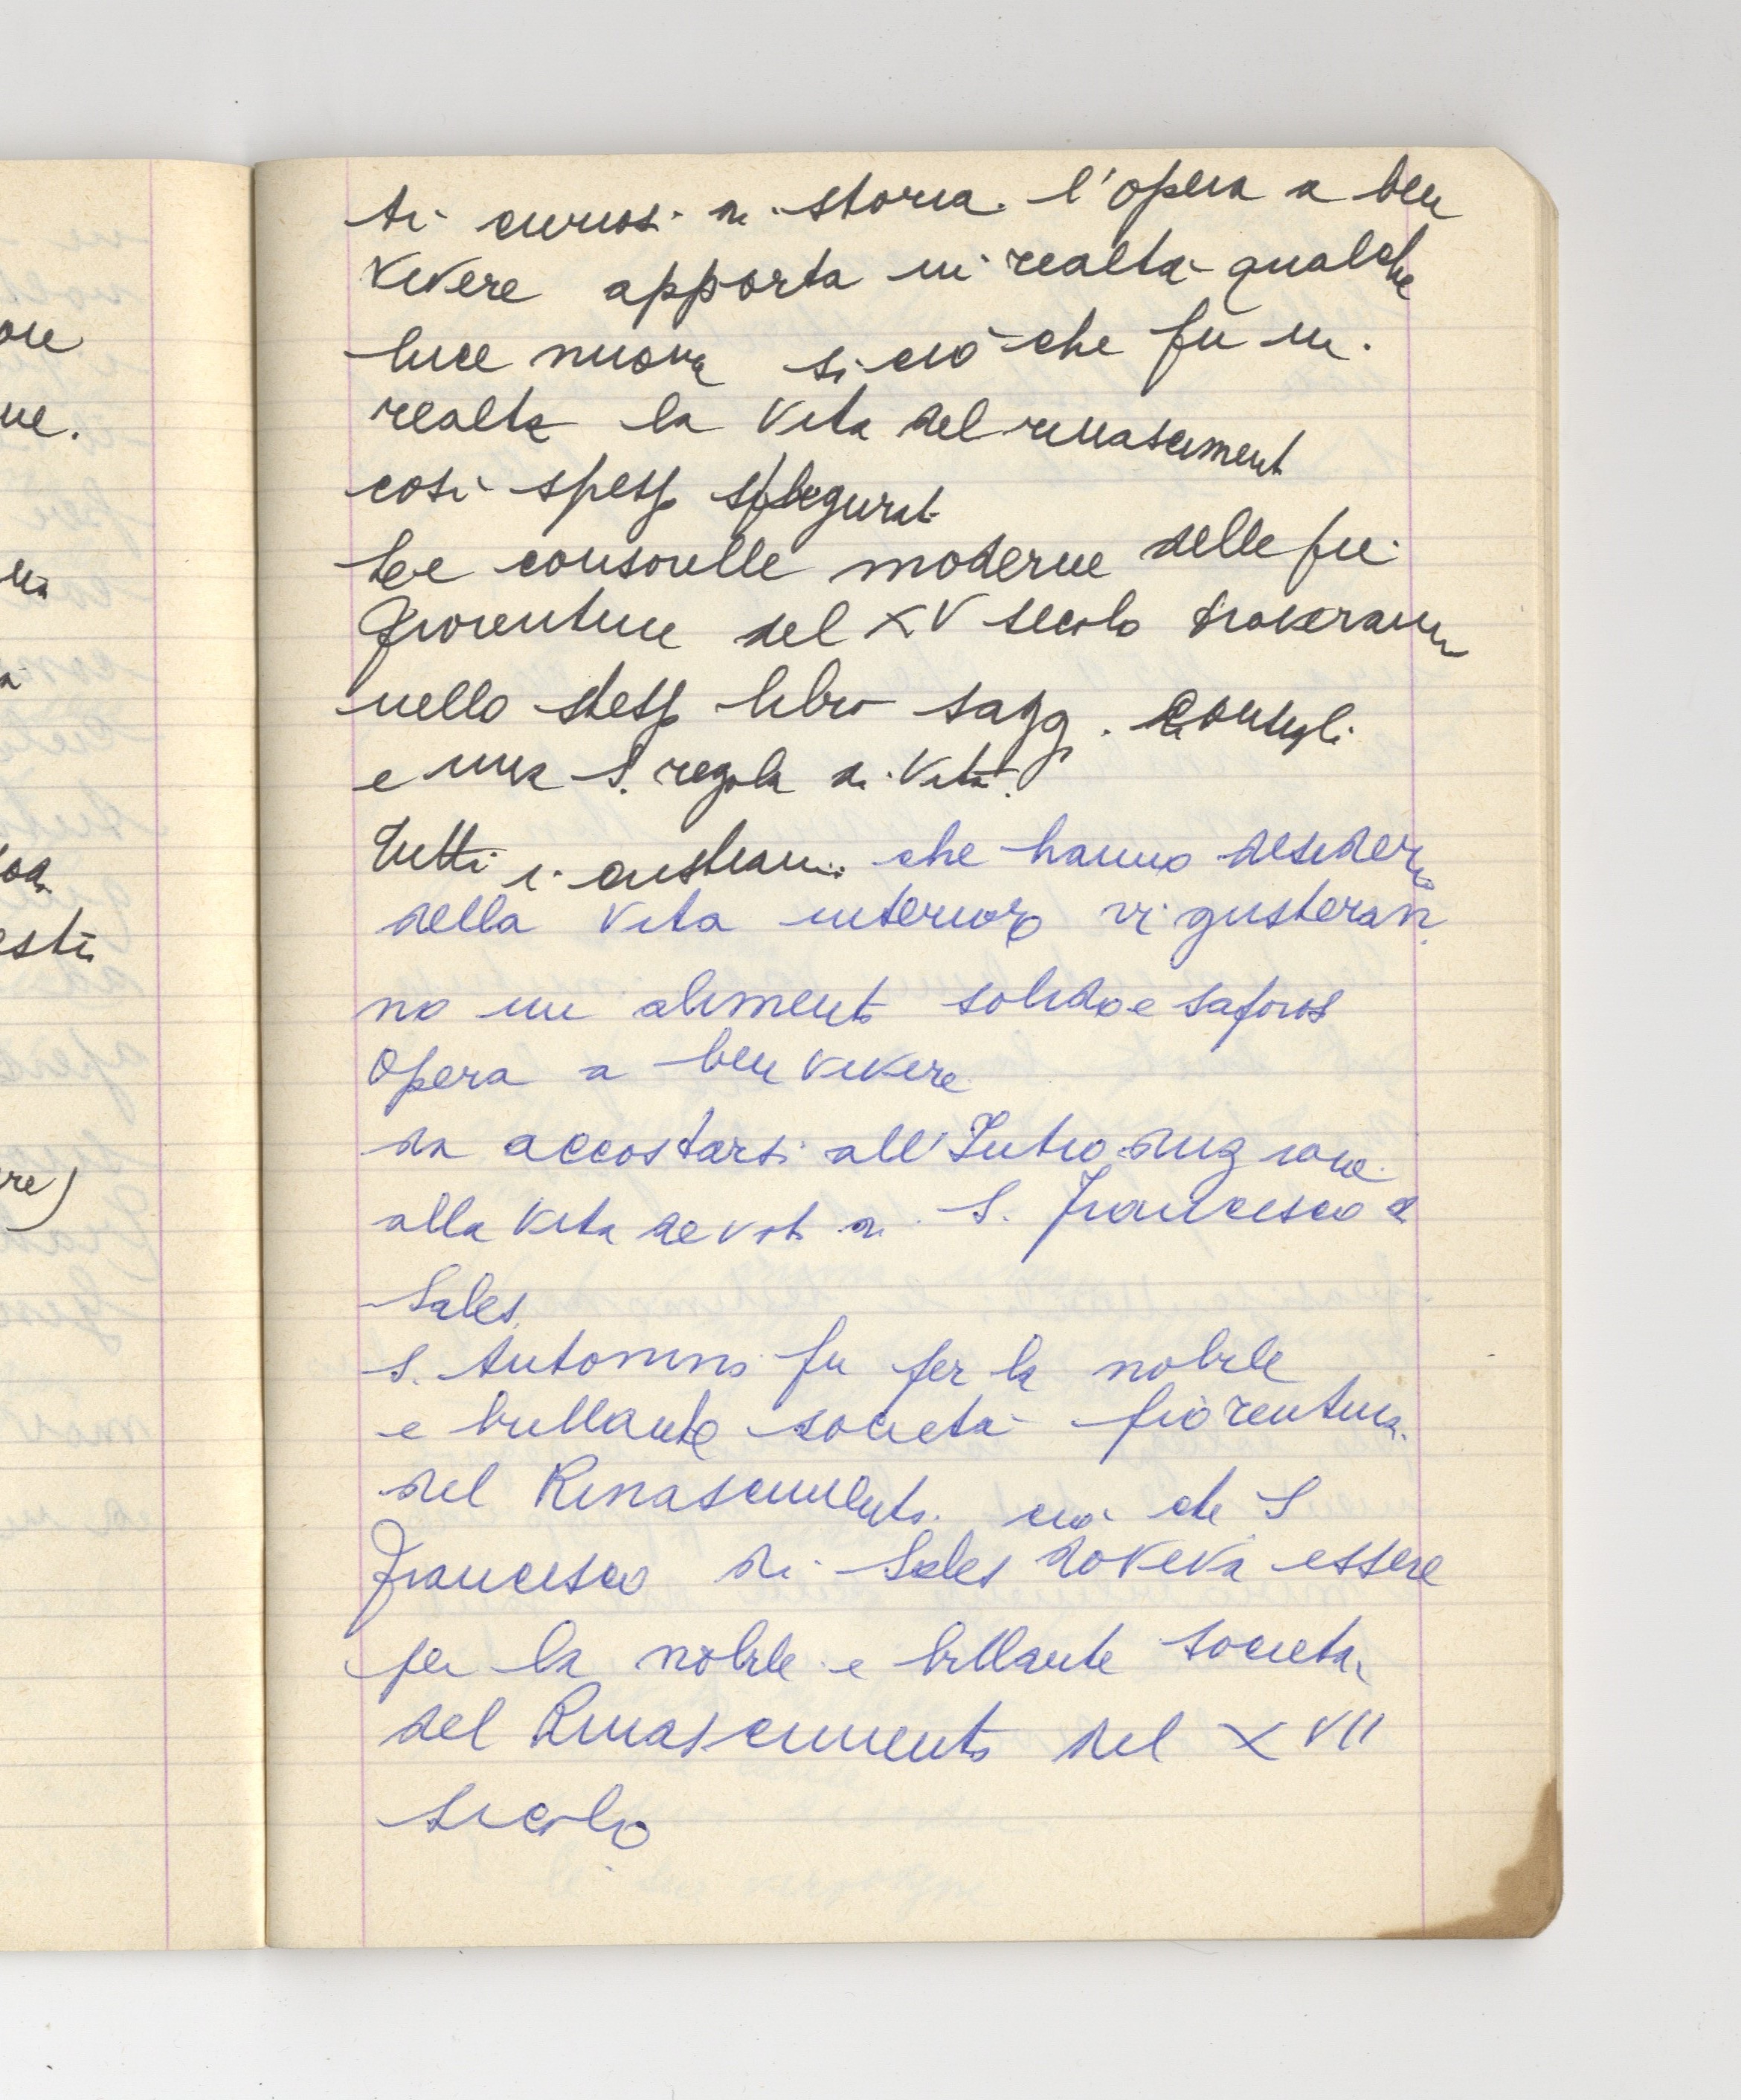 ti curiosi di storia. l'opera a ben
vivere apporta in realtà qualche
luce nuova si ciò che fu in
realtà la vita del rinasciment
così spesso sfigurat
Le consorelle moderne delle pie
fiorentine del XV secolo troveranno
nello stesso libro saggi consigli
e una S. regola di vita.
Tutti i cristiani che hanno desiderio
della vita interiore vi gusteran
no un alimento solido e saporos
Opera a ben vivere
da accostarsi all'Introduzione
alla vita devota di S. Francesco di
Sales.
S. Antonino fu per la nobile
e brillante società fiorentina
del Rinascimento ciò che S
Francesco di Sales doveva essere
per la nobile e brillante società
del Rinascimento del XVII
secolo